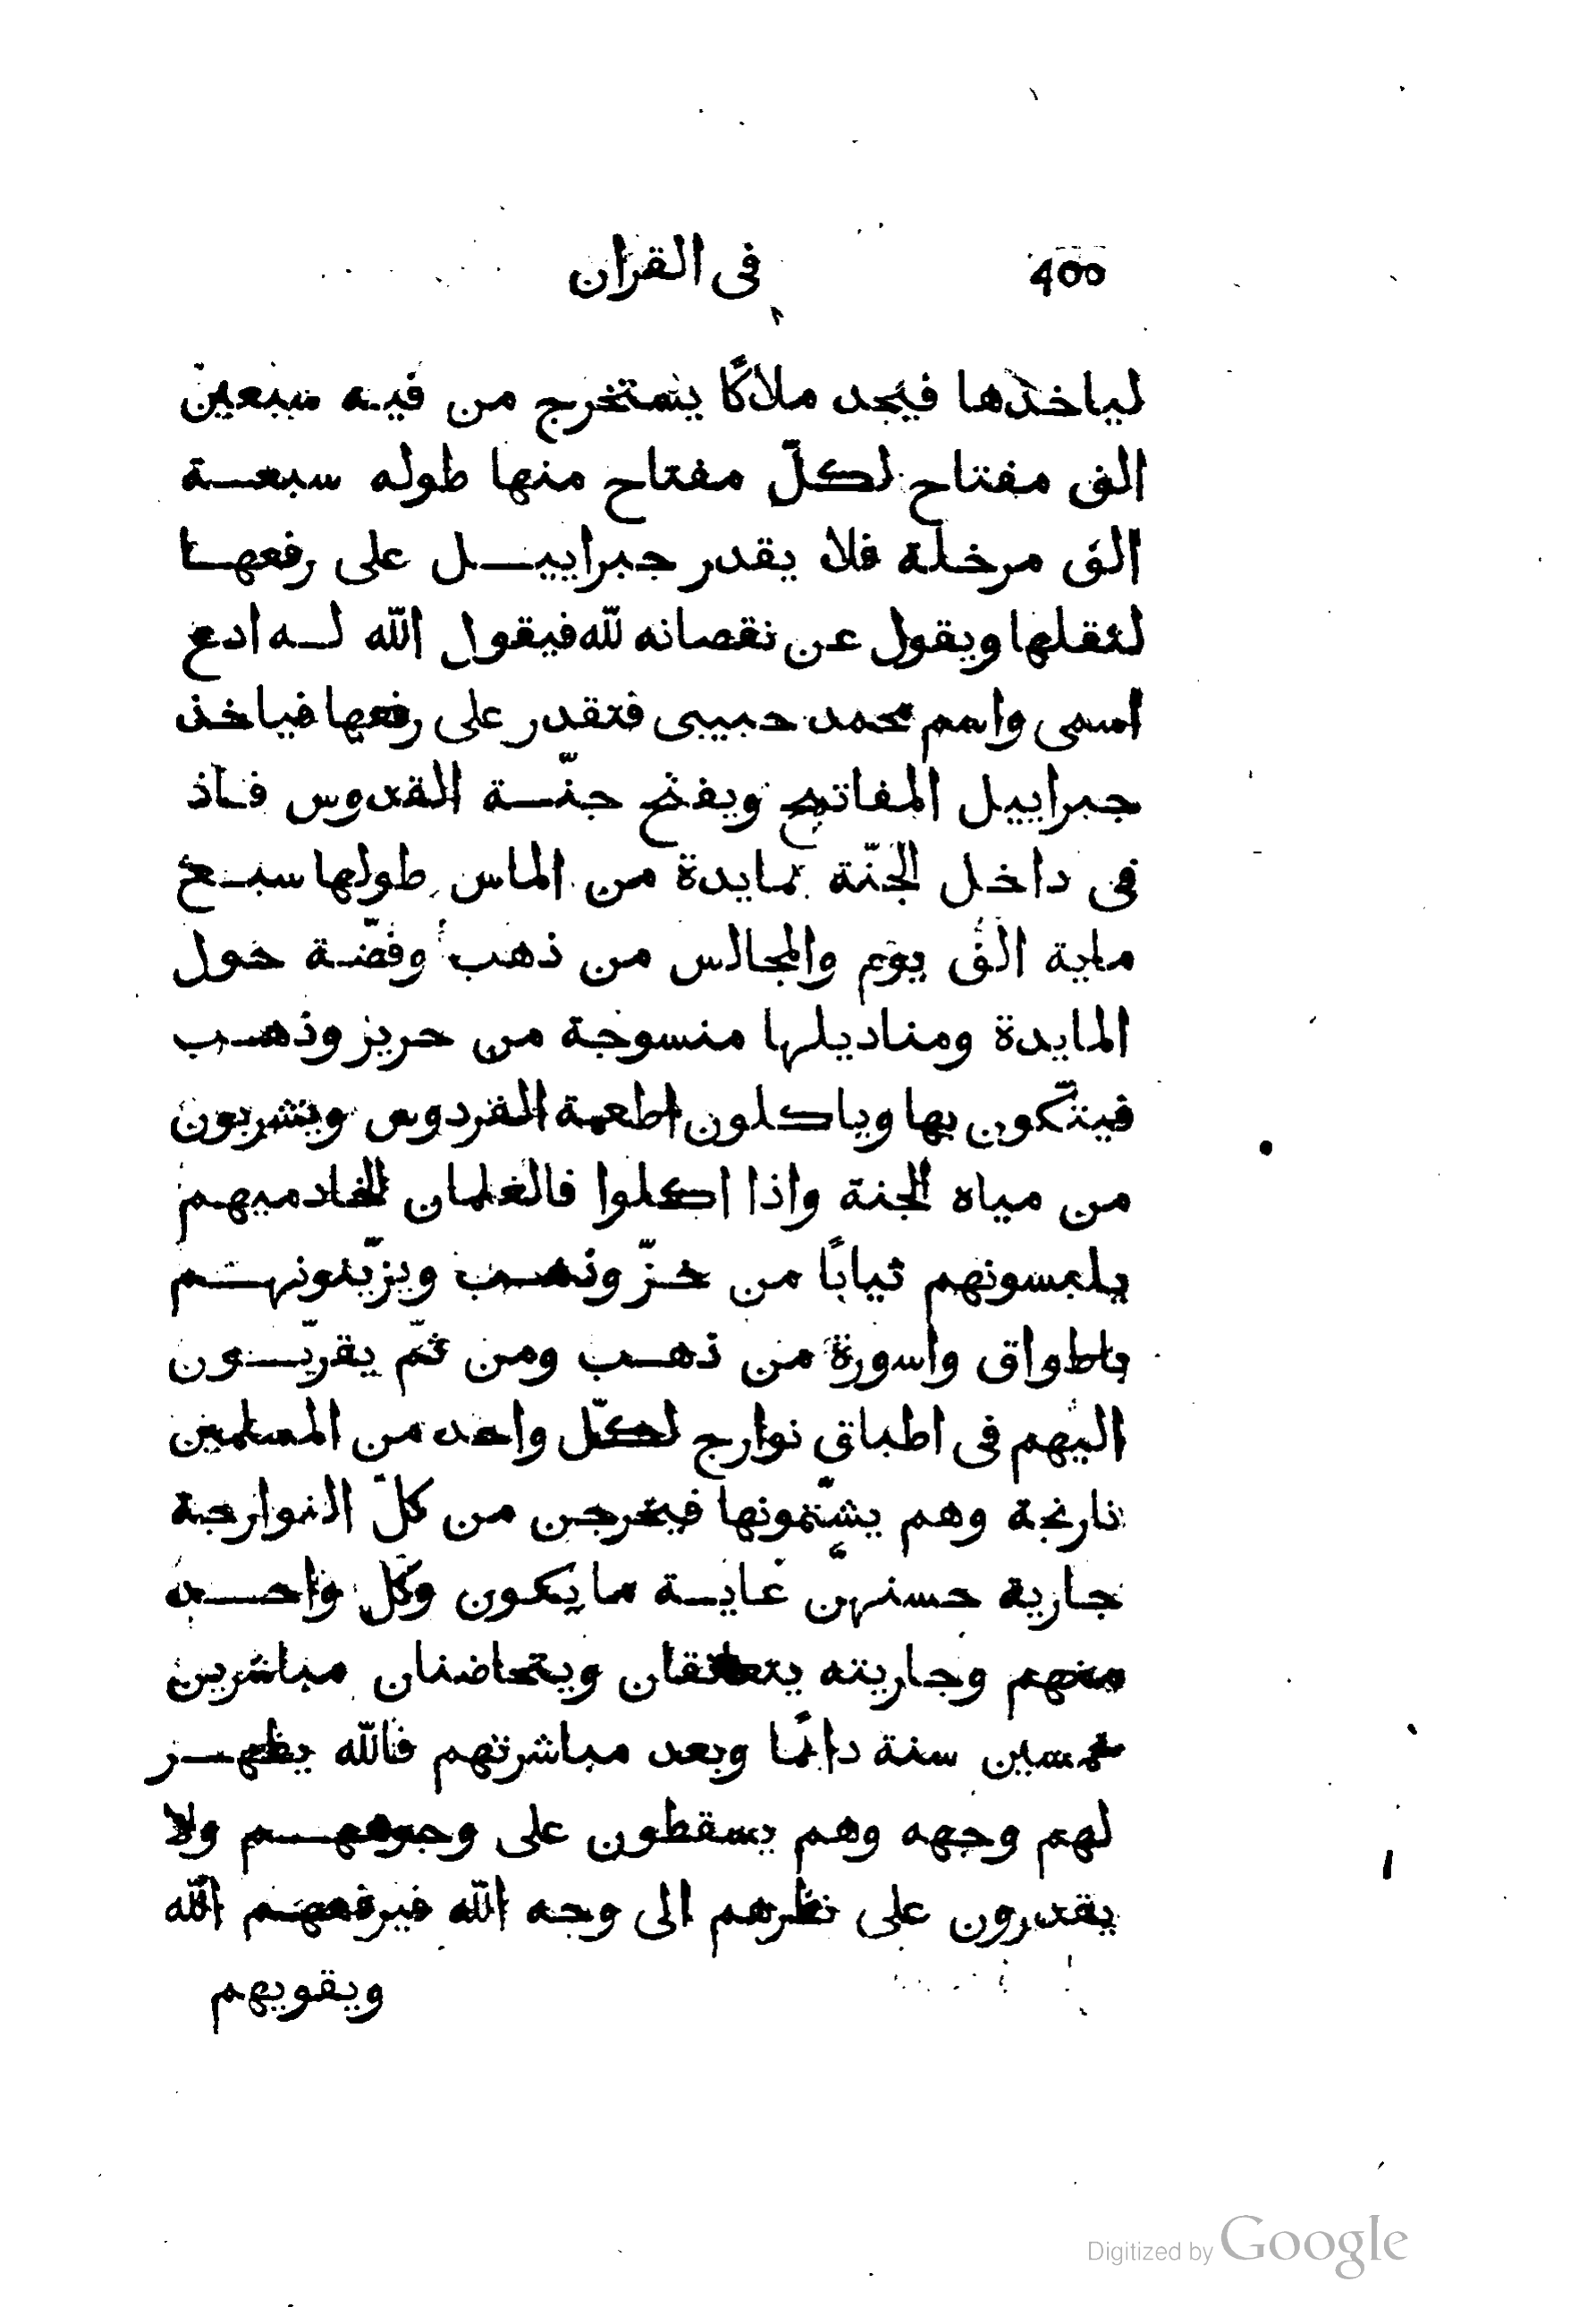 400 فى القرآن
لياخذها فيجد ملاكًا يستخرج من فيه سبعين
الف مفتاح لكلّ مفتاح منها طوله سبعة
الف مرحلة فلا يقدر جبراييل على رفعها
لثقلها ويقول عن نقصانه للّه فيقول اللّه له ادع
اسمى واسم محمد حبيبى فتقدر على رفعها فياخذ
جبراييل المفاتيح ويفتح جنّة القدوس فاذ
فى داخل الجنّة مايدة من الماس طولها سبع
ماية الف يوم والمجالس من ذهب وفضّة حول
المايدة ومناديلها منسوجة من حرير وذهب
فيتّكون بها وياكلون اطعمة الفردوس ويشربون
من مياه الجنة واذا اكلوا فالغلمان الخادميهم
يلبسونهم ثيابًا من خزّ وذهب ويزيّنونهم
باطواق واسورة من ذهب ومن ثمّ يقرّبون
اليهم فى اطباق نوارج لكلّ واحد من المسلمين
نارنجة وهم يشمّونها فيخرجن من كلّ النوارجة
جارية حسنهنّ غاية ما يكون وكلّ واحد
منهم وجاريته يتعانقان ويتحاضنان مباشرين
خمسين سنة دائمًا وبعد مباشرتهم فاللّه يظهر
لهم وجهه وهم يسقطون على وجوههم ولا
يقدرون على نظرهم الى وجه اللّه فيرفعهم اللّه
ويقويهم
Digitized by Google